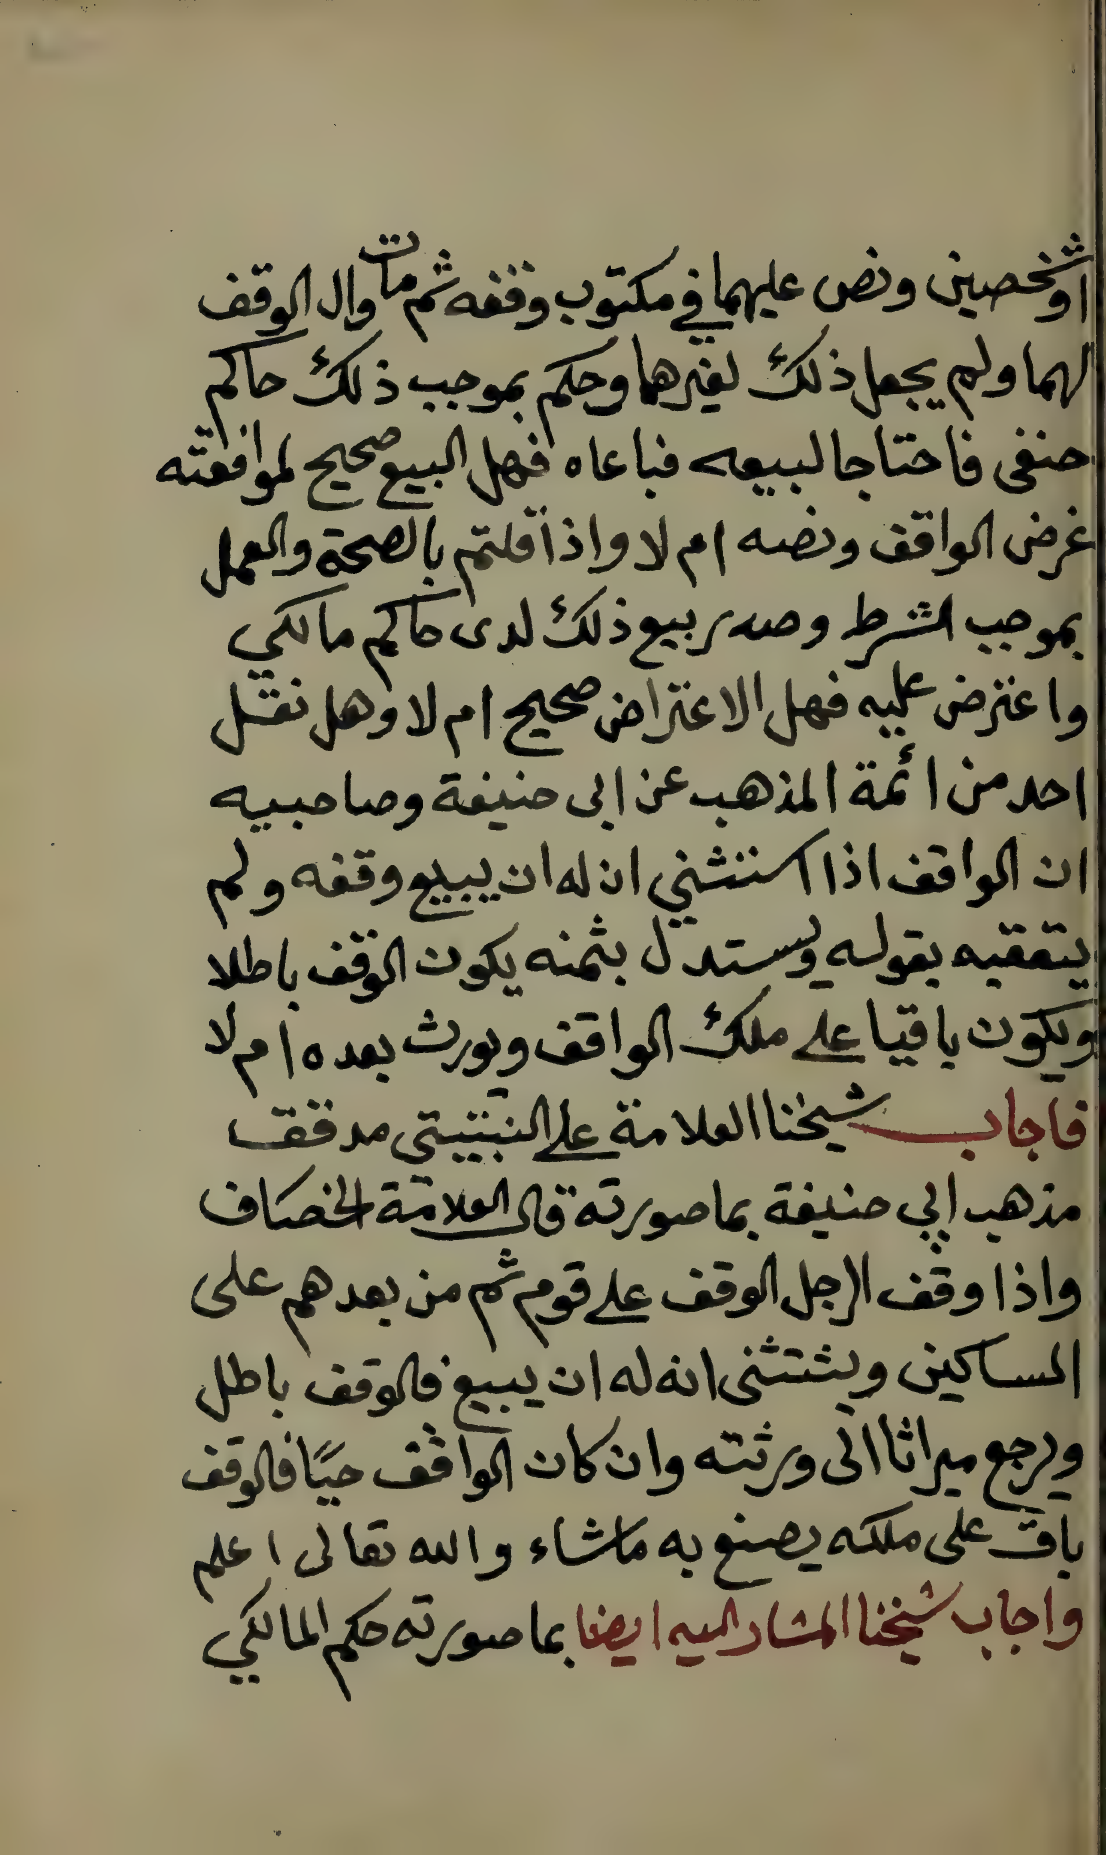 او شخصين ونص عليهما في مكتوب وقفه ثم مات وال الوقف
لهما ولم يجعل ذلك لغيرهما وحكم بموجب ذلك حاكم
حنفى فاحتاجا لبيعه فباعاه فهل البيع صحيح لموافقته
غرض الواقف ونصه ام لا واذا قلتم بالصحة والعمل
بموجب الشرط وصدر بيع ذلك لدى حاكم مالكي
واعترض عليه فهل الاعتراض صحيح ام لا وهل نقل
احد من ائمة المذهب عن ابى حنيفة وصاحبيه
ان الواقف اذا استثني ان له ان يبيع وقفه ولم
يتعقبه بقوله ويستدل بثمنه يكون الوقف باطلا
ويكون باقيا على ملك الواقف ويورث بعده ام لا
فاجاب شيخنا العلامة على النبتيتى مدقق
مذهب ابي حنيفة بما صورته قال العلامة الخصاف
واذا وقف الرجل الوقف على قوم ثم من بعدهم على
المساكين ويشتثنى انه له ان يبيع فالوقف باطل
ويرجع ميراثا الى ورثته وان كان الواقف حيًا فالوقف
باق على ملكه يصنع به ماشاء والله تعالى اعلم
واجاب شيخنا المشار اليه ايضا بما صورته حكم المالكي